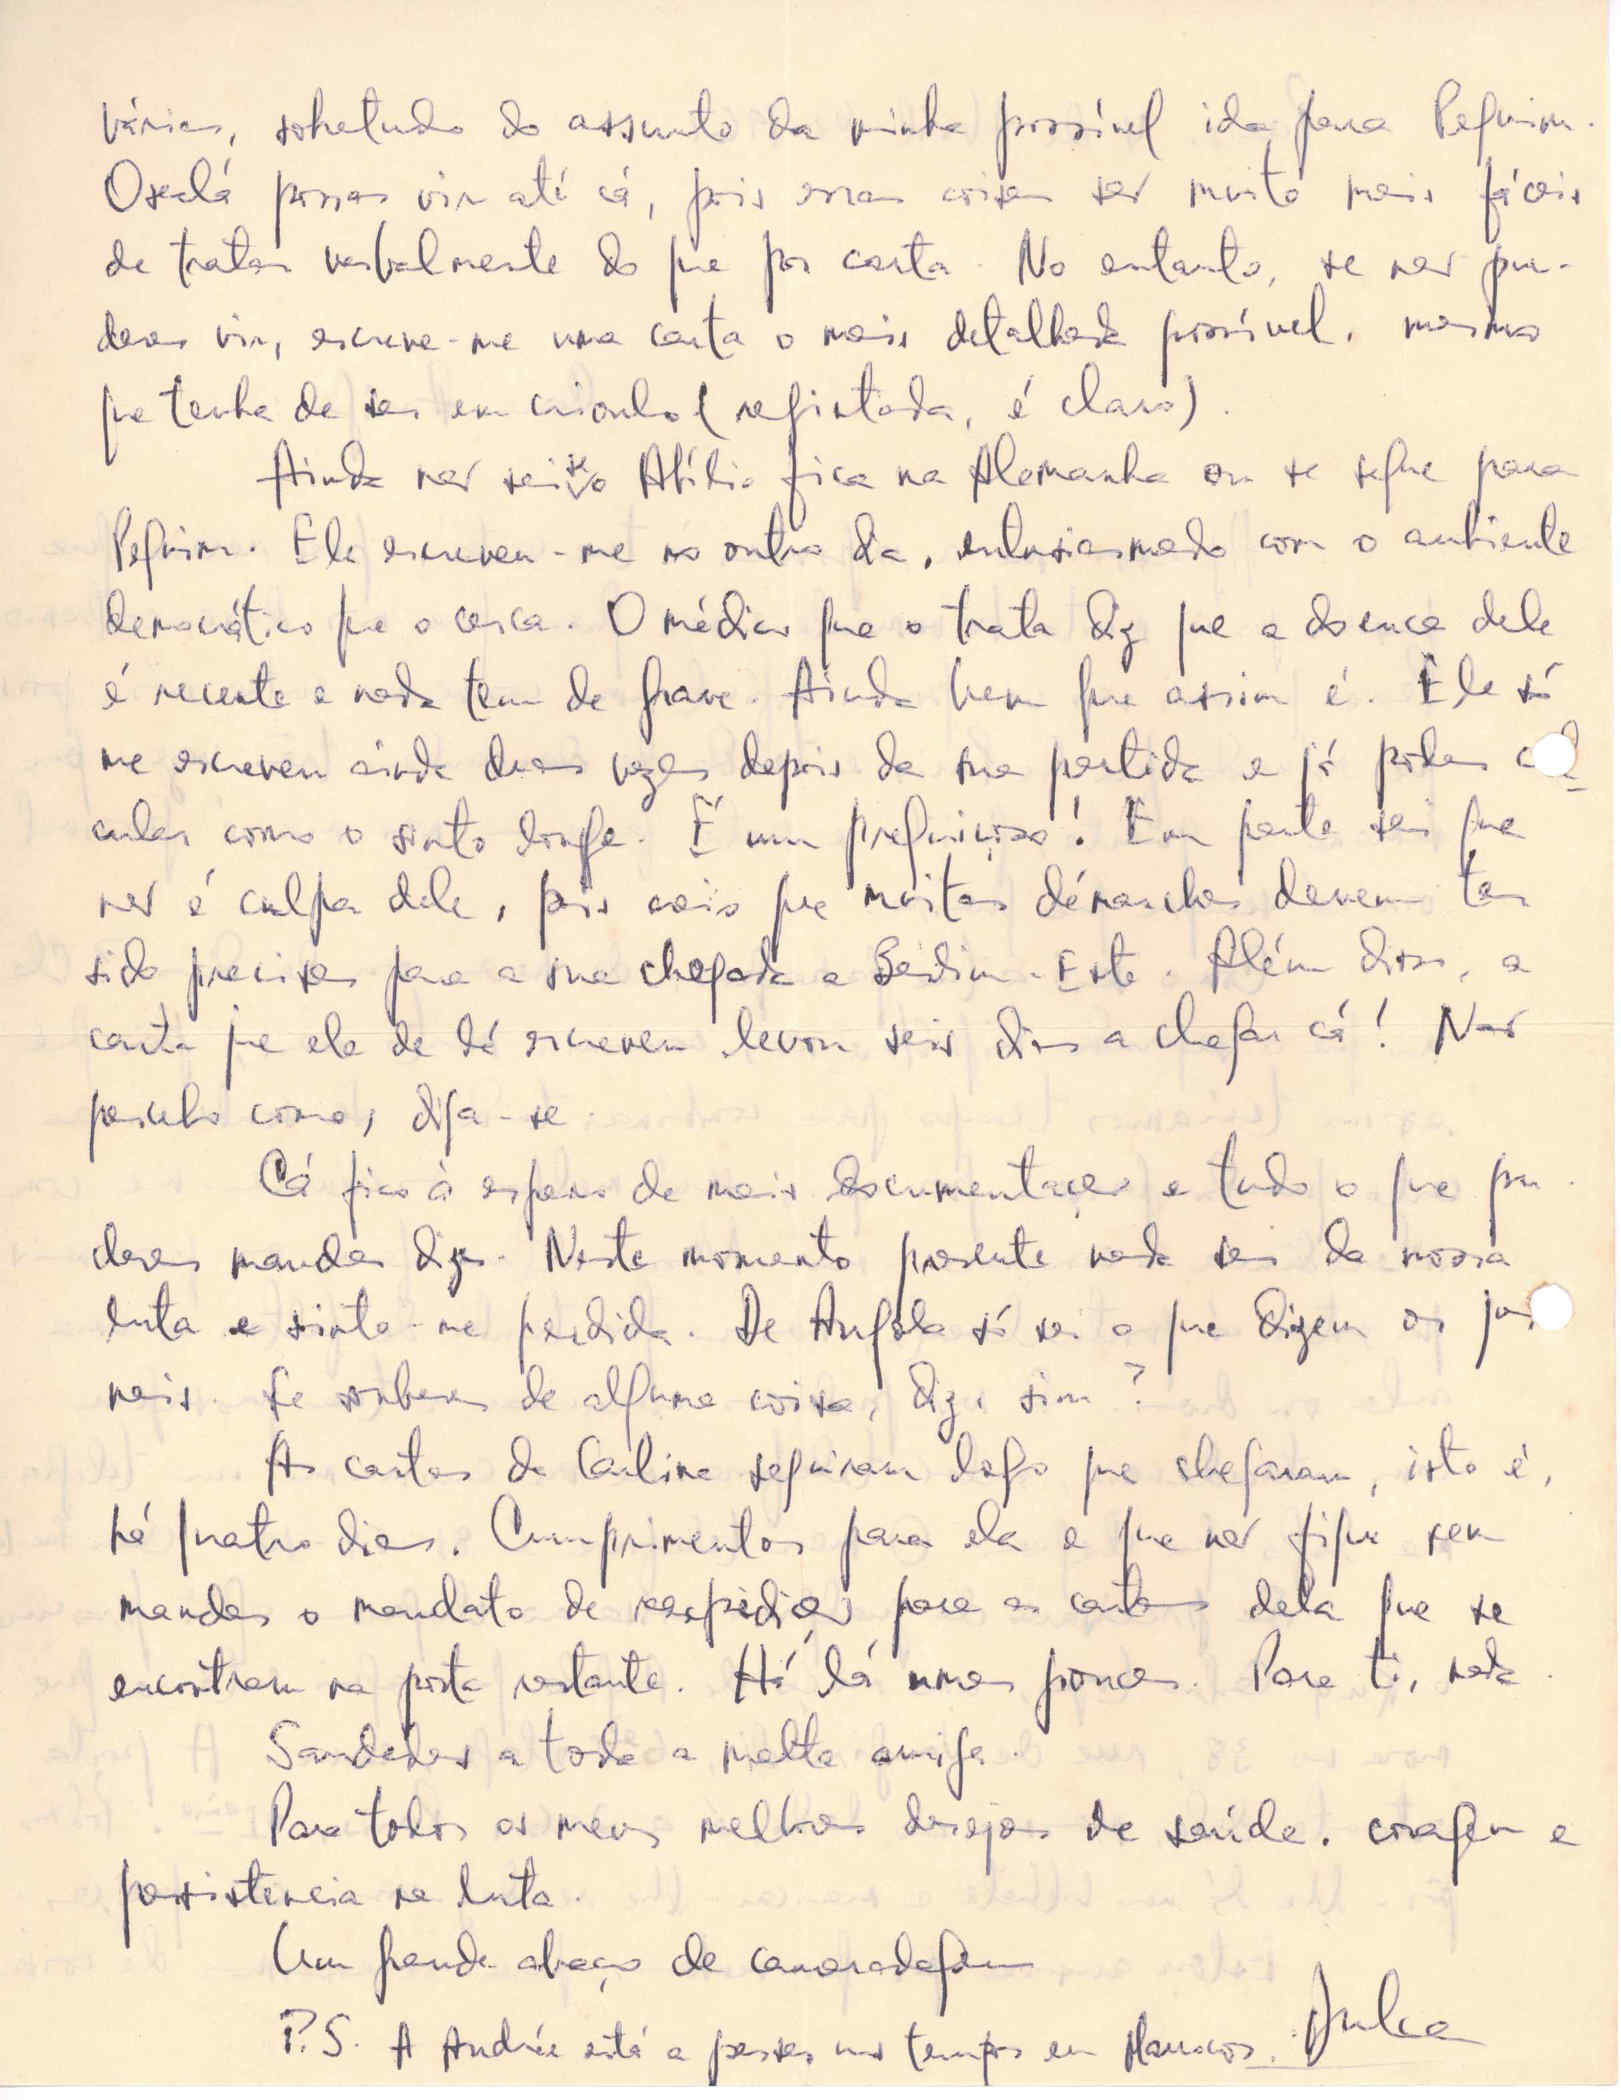 várias, sobretudo do assunto da minha possível ida para Pequim.
Oxalá possas vir até cá, pois essas coisas são muito mais fáceis
de tratar verbalmente do que por carta. No entanto, se não pu-
deres vir, escreve-me uma carta o mais detalhada possível, mesmo
que tenha de ser em crioulo (registada, é claro).
Ainda não sei se o Abílio fica na Alemanha ou se segue para
Pequim. Ele escreveu-me no outro dia, entusiasmado com o ambiente
democrático que o cerca. O médico que o trata diz que a doença dele
é recente e nada tem de grave. Ainda bem que assim é. Ele só
me escreveu ainda duas vezes depois da sua partida e já podes cal
cular como o sinto longe. É um preguiçoso! Em parte sei que
não é culpa dele, pois creio que muitas démarches devem ter
sido precisas para a sua chegada a Berlim-Este. Além disso, a
carta que ele de lá escreveu levou seis dias a chegar cá! Não
percebo como, diga-se.
Cá fico à espera de mais documentação e tudo o que pu-
deres mandar dizer. Neste momento presente nada sei da nossa
luta e sinto-me perdida. De Angola só sei o que dizem os jor
nais. Se souberes de alguma coisa, diz, sim?
As cartas da Carline seguiram logo que chegaram, isto é,
há quatro dias. Cumprimentos para ela e que não fique sem
mandar o mandato de reexpedição para as cartas dela que se
encontram na posta restante. Há lá umas poucas. Para ti, nada.
Saudades a toda a malta amiga.
Para todos os meus melhores desejos de saúde, coragem e
persistencia na luta.
Um grande abraço de camaradagem
Dulce
P.S. A Andrée está a passar uns tempos em Marrocos.